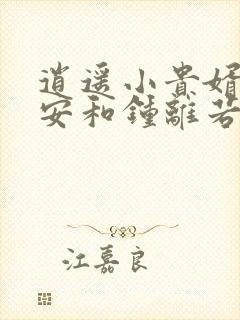 逍遥小贵婿
安和钟离若
江嘉良